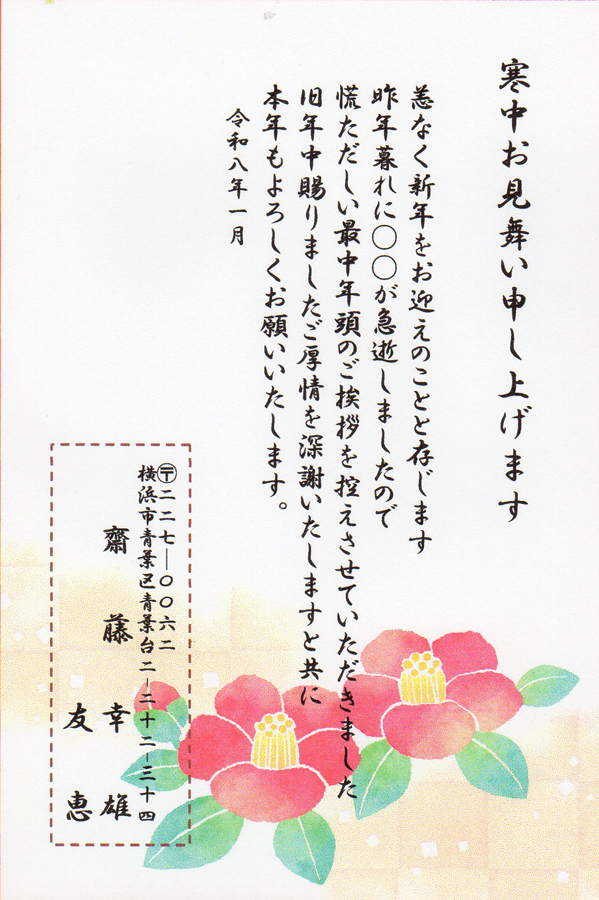 寒中お見舞い申し上げます
恙なく新年をお迎えのことと存じます
昨年暮れに〇〇が急逝しましたので
慌ただしい最中年頭のご挨拶を控えさせていただきました
旧年中賜りましたご厚情を深謝いたしますと共に
本年もよろしくお願いいたします。
令和八年一月
〒二二七―〇〇六二
横浜市青葉区青葉台二―二十二―三十四
齋藤幸雄
友恵